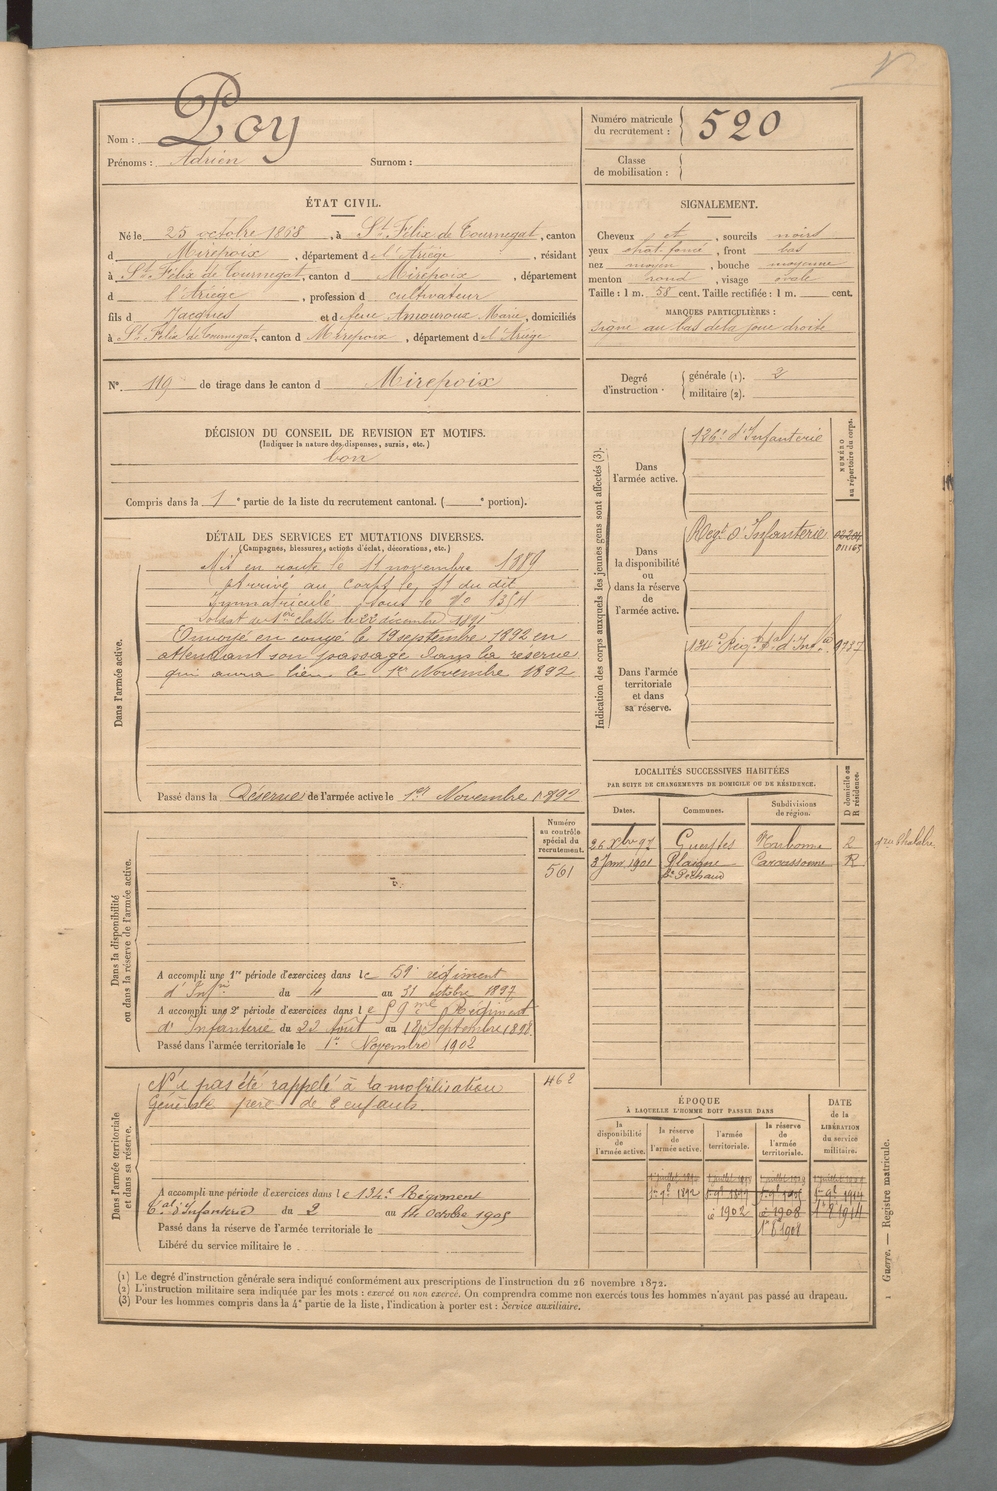 Nom : Poy
Prénoms : Adrien Surnom :
Numéro matricule du recrutement : 520
Classe de mobilisation :
ÉTAT CIVIL.
Né le 25 octobre 1868, à St. Félix de Tournegat, canton
d Mirepoix, département de l'Ariège, résidant
à St. Félix de Tournegat, canton d Mirepoix, département
d l'Ariège, profession d cultivateur
fils d Jacques et d feue Amouroux Marie, domiciliés
à St. Félix de Tournegat, canton d Mirepoix, département de l'Ariège
N°. 119 de tirage dans le canton d Mirepoix
SIGNALEMENT.
Cheveux et, sourcils noirs
yeux chat. foncé, front bas
nez moyen, bouche moyenne
menton rond, visage ovale
Taille : 1 m. 58 cent. Taille rectifiée : 1 m. cent.
MARQUES PARTICULIÈRES :
signe au bas de la joue droite
Degré d'instruction. générale (1). 2
militaire (2).
DÉCISION DU CONSEIL DE REVISION ET MOTIFS.
(Indiquer la nature des dispenses, sursis, etc.)
bon
Compris dans la 1e partie de la liste du recrutement cantonal. ( e portion).
DÉTAIL DES SERVICES ET MUTATIONS DIVERSES.
(Campagnes, blessures, actions d'éclat, décorations, etc.)
Dans l'armée active.
Mis en route le 11 novembre 1889
Arrivé au corps le 11 du dit
Immatriculé sous le No 1354
Soldat de 1ère classe le 22 décembre 1891
Envoyé en congé le 19 septembre 1892 en
attendant son passage dans la réserve
qui aura lieu le 1er Novembre 1892
Passé dans la Réserve de l'armée active le 1er Novembre 1892
Indication des corps auxquels les jeunes gens sont affectés (3).
NUMÉRO au répertoire du corps.
Dans l'armée active.
126e d'Infanterie
Dans la disponibilité ou dans la réserve de l'armée active.
Regt d'Infanterie
011165
Dans l'armée territoriale et dans sa réserve.
134e Régt tal d'Infie
9737
LOCALITÉS SUCCESSIVES HABITÉES
PAR SUITE DE CHANGEMENTS DE DOMICILE OU DE RÉSIDENCE.
Dates. Communes. Subdivisions de région. D domicile ou R résidence.
26 Xbre 97 Gueytes Narbonne R con Chalabre
3 Janv. 1901 Plaigne Carcassonne R
Dans la disponibilité ou dans la réserve de l'armée active.
Numéro au contrôle spécial du recrutement.
561
A accompli une 1re période d'exercices dans le 59e régiment
d'Infie du 4 au 31 octobre 1897
A accompli une 2e période d'exercices dans le 59me Régiment
d'Infanterie du 22 Août au 18 Septembre 1898
Passé dans l'armée territoriale le 1er Novembre 1902
Dans l'armée territoriale et dans sa réserve.
462
N'a pas été rappelé à la mobilisation
Générale père de 8 enfants.
A accompli une période d'exercices dans le 134e Régiment
tal d'Infanterie du 2 au 14 octobre 1905
Passé dans la réserve de l'armée territoriale le
Libéré du service militaire le
ÉPOQUE
À LAQUELLE L'HOMME DOIT PASSER DANS
la disponibilité de l'armée active. la réserve de l'armée active. l'armée territoriale. la réserve de l'armée territoriale. DATE de la LIBÉRATION du service militaire.
1er 9e 1892 1er 9e 1899
1902 1908
1908
(1) Le degré d'instruction générale sera indiqué conformément aux prescriptions de l'instruction du 26 novembre 1872.
(2) L'instruction militaire sera indiquée par les mots : exercé ou non exercé. On comprendra comme non exercés tous les hommes n'ayant pas passé au drapeau.
(3) Pour les hommes compris dans la 4e partie de la liste, l'indication à porter est : Service auxiliaire.
Guerre. — Registre matricule.